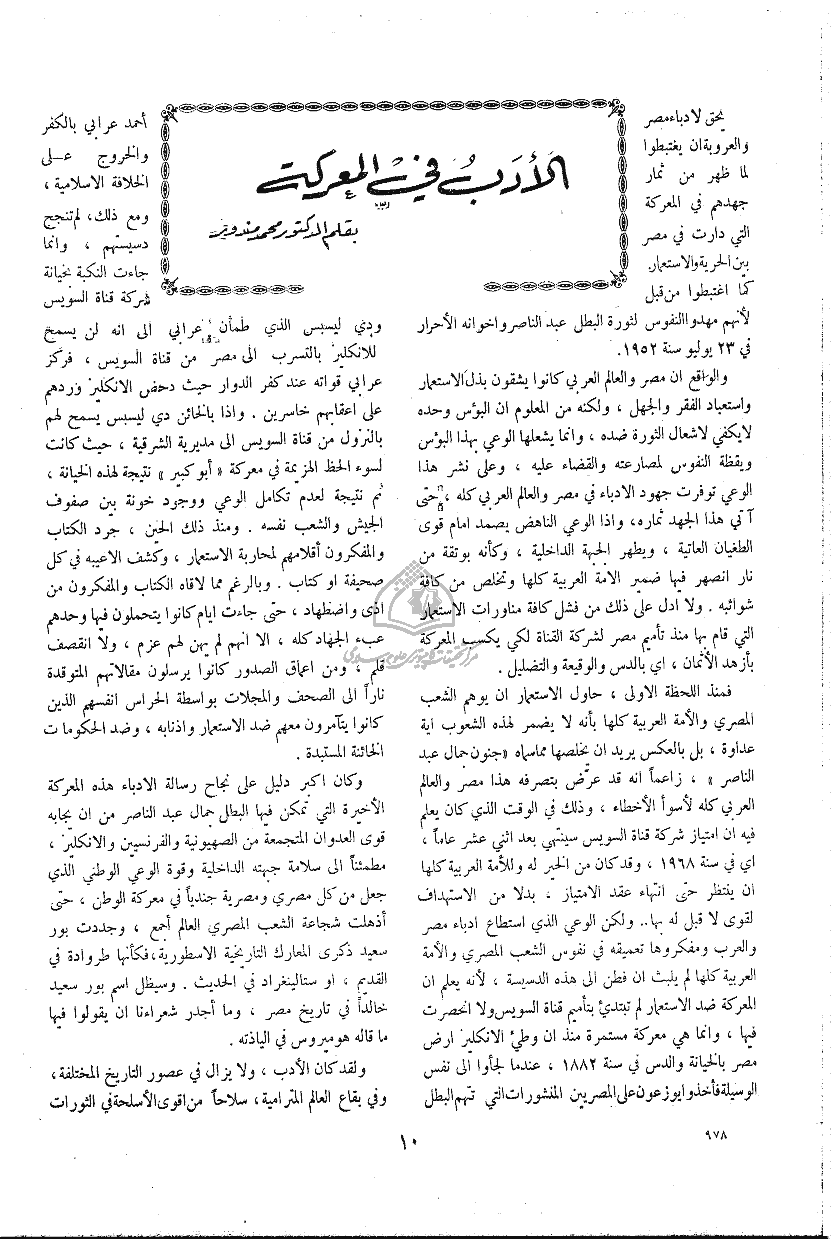 الأدب في المعركة
بقلم الدكتور محمد مندور
يحق لادباء مصر
والعروبة ان يغتبطوا
لما ظهر من ثمار
جهدهم في المعركة
التي دارت في مصر
بين الحرية والاستعمار
كما اغتبطوا من قبل
لأنهم مهدوا النفوس لثورة البطل عبد الناصر واخوانه الأحرار
في ٢٣ يوليو سنة ١٩٥٢.
والواقع ان مصر والعالم العربي كانوا يشقون بذل الاستعمار
واستعباد الفقر والجهل ، ولكنه من المعلوم ان البؤس وحده
لايكفي لاشعال الثورة ضده ، وانما يشعلها الوعي بهذا البؤس
ويقظة النفوس لمصارعته والقضاء عليه ، وعلى نشر هذا
الوعي توفرت جهود الادباء في مصر والعالم العربي كله ، حتى
آتي هذا الجهد ثماره، واذا الوعي الناهض يصمد امام قوى
الطغيان العاتية ، ويطهر الجبهة الداخلية ، وكأنه بوتقة من
نار انصهر فيها ضمير الامة العربية كلها وتخلص من كافة
شوائبه . ولا ادل على ذلك من فشل كافة مناورات الاستعمار
التي قام بها منذ تأميم مصر لشركة القناة لكي يكسب المعركة
بأزهد الأثمان ، اي بالدس والوقيعة والتضليل .
فمنذ اللحظة الاولى ، حاول الاستعمار ان يوهم الشعب
المصري والأمة العربية كلها بأنه لا يضمر لهذه الشعوب اية
عداوة ، بل بالعكس يريد ان يخلصها مماسماه «جنون جمال عبد
الناصر » ، زاعماً انه قد عرّض بتصرفه هذا مصر والعالم
العربي كله لأسوأ الأخطاء ، وذلك في الوقت الذي كان يعلم
فيه ان امتياز شركة قناة السويس سينتهي بعد اثني عشر عاماً ،
اي في سنة ١٩٦٨ ، وقد كان من الخير له وللأمة العربية كلها
ان ينتظر حتى انتهاء عقد الامتياز ، بدلا من الاستهداف
لقوى لا قبل له بها.. ولكن الوعي الذي استطاع ادباء مصر
والعرب ومفكروها تعميقه في نفوس الشعب المصري والأمة
العربية كلها لم يلبث ان فطن الى هذه الدسيسة ، لأنه يعلم ان
المعركة ضد الاستعمار لم تبتدئ بتأميم قناة السويس ولا انحصرت
فيها ، وانما هي معركة مستمرة منذ ان وطئ الانكليز ارض
مصر بالخيانة والدس في سنة ١٨٨٢ ، عندما لجأوا الى نفس
الوسيلة فأخذوا يوزعون على المصريين المنشورات التي تتهم البطل
أحمد عرابي بالكفر
والخروج على
الخلافة الاسلامية ،
ومع ذلك، لم تنجح
دسيستهم ، وانما
جاءت النكبة بخيانة
شركة قناة السويس
ودي ليسبس الذي طمأن عرابي الى انه لن يسمح
للانكليز بالتسرب الى مصر من قناة السويس ، فركز
عرابي قواته عند كفر الدوار حيث دحض الانكليز وردهم
على اعقابهم خاسرين . واذا بالخائن دي ليسبس يسمح لهم
بالنزول من قناة السويس الى مديرية الشرقية ، حيث كانت
لسوء الحظ الهزيمة في معركة «أبو كبير » نتيجة لهذه الخيانة ،
ثم نتيجة لعدم تكامل الوعي ووجود خونة بين صفوف
الجيش والشعب نفسه . ومنذ ذلك الحين ، جرد الكتاب
والمفكرون أقلامهم لمحاربة الاستعمار ، وكشف الاعيبه في كل
صحيفة او كتاب . وبالرغم مما لاقاه الكتاب والمفكرون من
اذى واضطهاد ، حتى جاءت ايام كانوا يتحملون فيها وحدهم
عبء الجهاد كله ، الا انهم لم يهن لهم عزم ، ولا انقصف
قلم ، ومن اعماق الصدور كانوا يرسلون مقالاتهم المتوقدة
ناراً الى الصحف والمجلات بواسطة الحراس انفسهم الذين
كانوا يتآمرون معهم ضد الاستعمار واذنابه ، وضد الحكومات
الخائنة المستبدة .
وكان اكبر دليل على نجاح رسالة الادباء هذه المعركة
الأخيرة التي تمكن فيها البطل جمال عبد الناصر من ان يجابه
قوى العدوان المتجمعة من الصهيونية والفرنسيين والانكليز ،
مطمئناً الى سلامة جبهته الداخلية وقوة الوعي الوطني الذي
جعل من كل مصري ومصرية جندياً في معركة الوطن ، حتى
أذهلت شجاعة الشعب المصري العالم أجمع ، وجددت بور
سعيد ذكرى المعارك التاريخية الاسطورية، فكأنها طروادة في
القديم ، او ستالينغراد في الحديث . وسيظل اسم بور سعيد
خالداً في تاريخ مصر ، وما أجدر شعراءنا ان يقولوا فيها
ما قاله هوميروس في الياذته .
ولقد كان الأدب ، ولا يزال في عصور التاريخ المختلفة،
وفي بقاع العالم المترامية، سلاحاً من اقوى الأسلحة في الثورات
١٠
٩٧٨